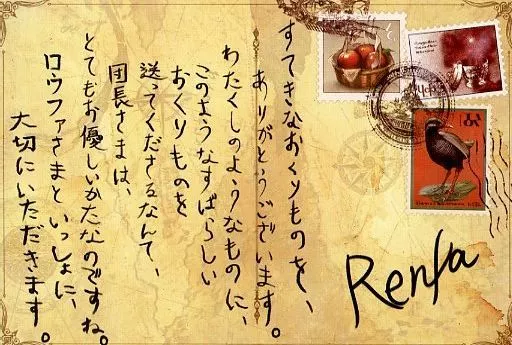 すてきなおくりものを、
ありがとうございます。
わたくしのようなものに、
このようなすばらしい
おくりものを
送ってくださるなんて、
団長さまは、
とてもお優しいかたなのですね。
ロウファさまといっしょに、
大切にいただきます。
Renfa